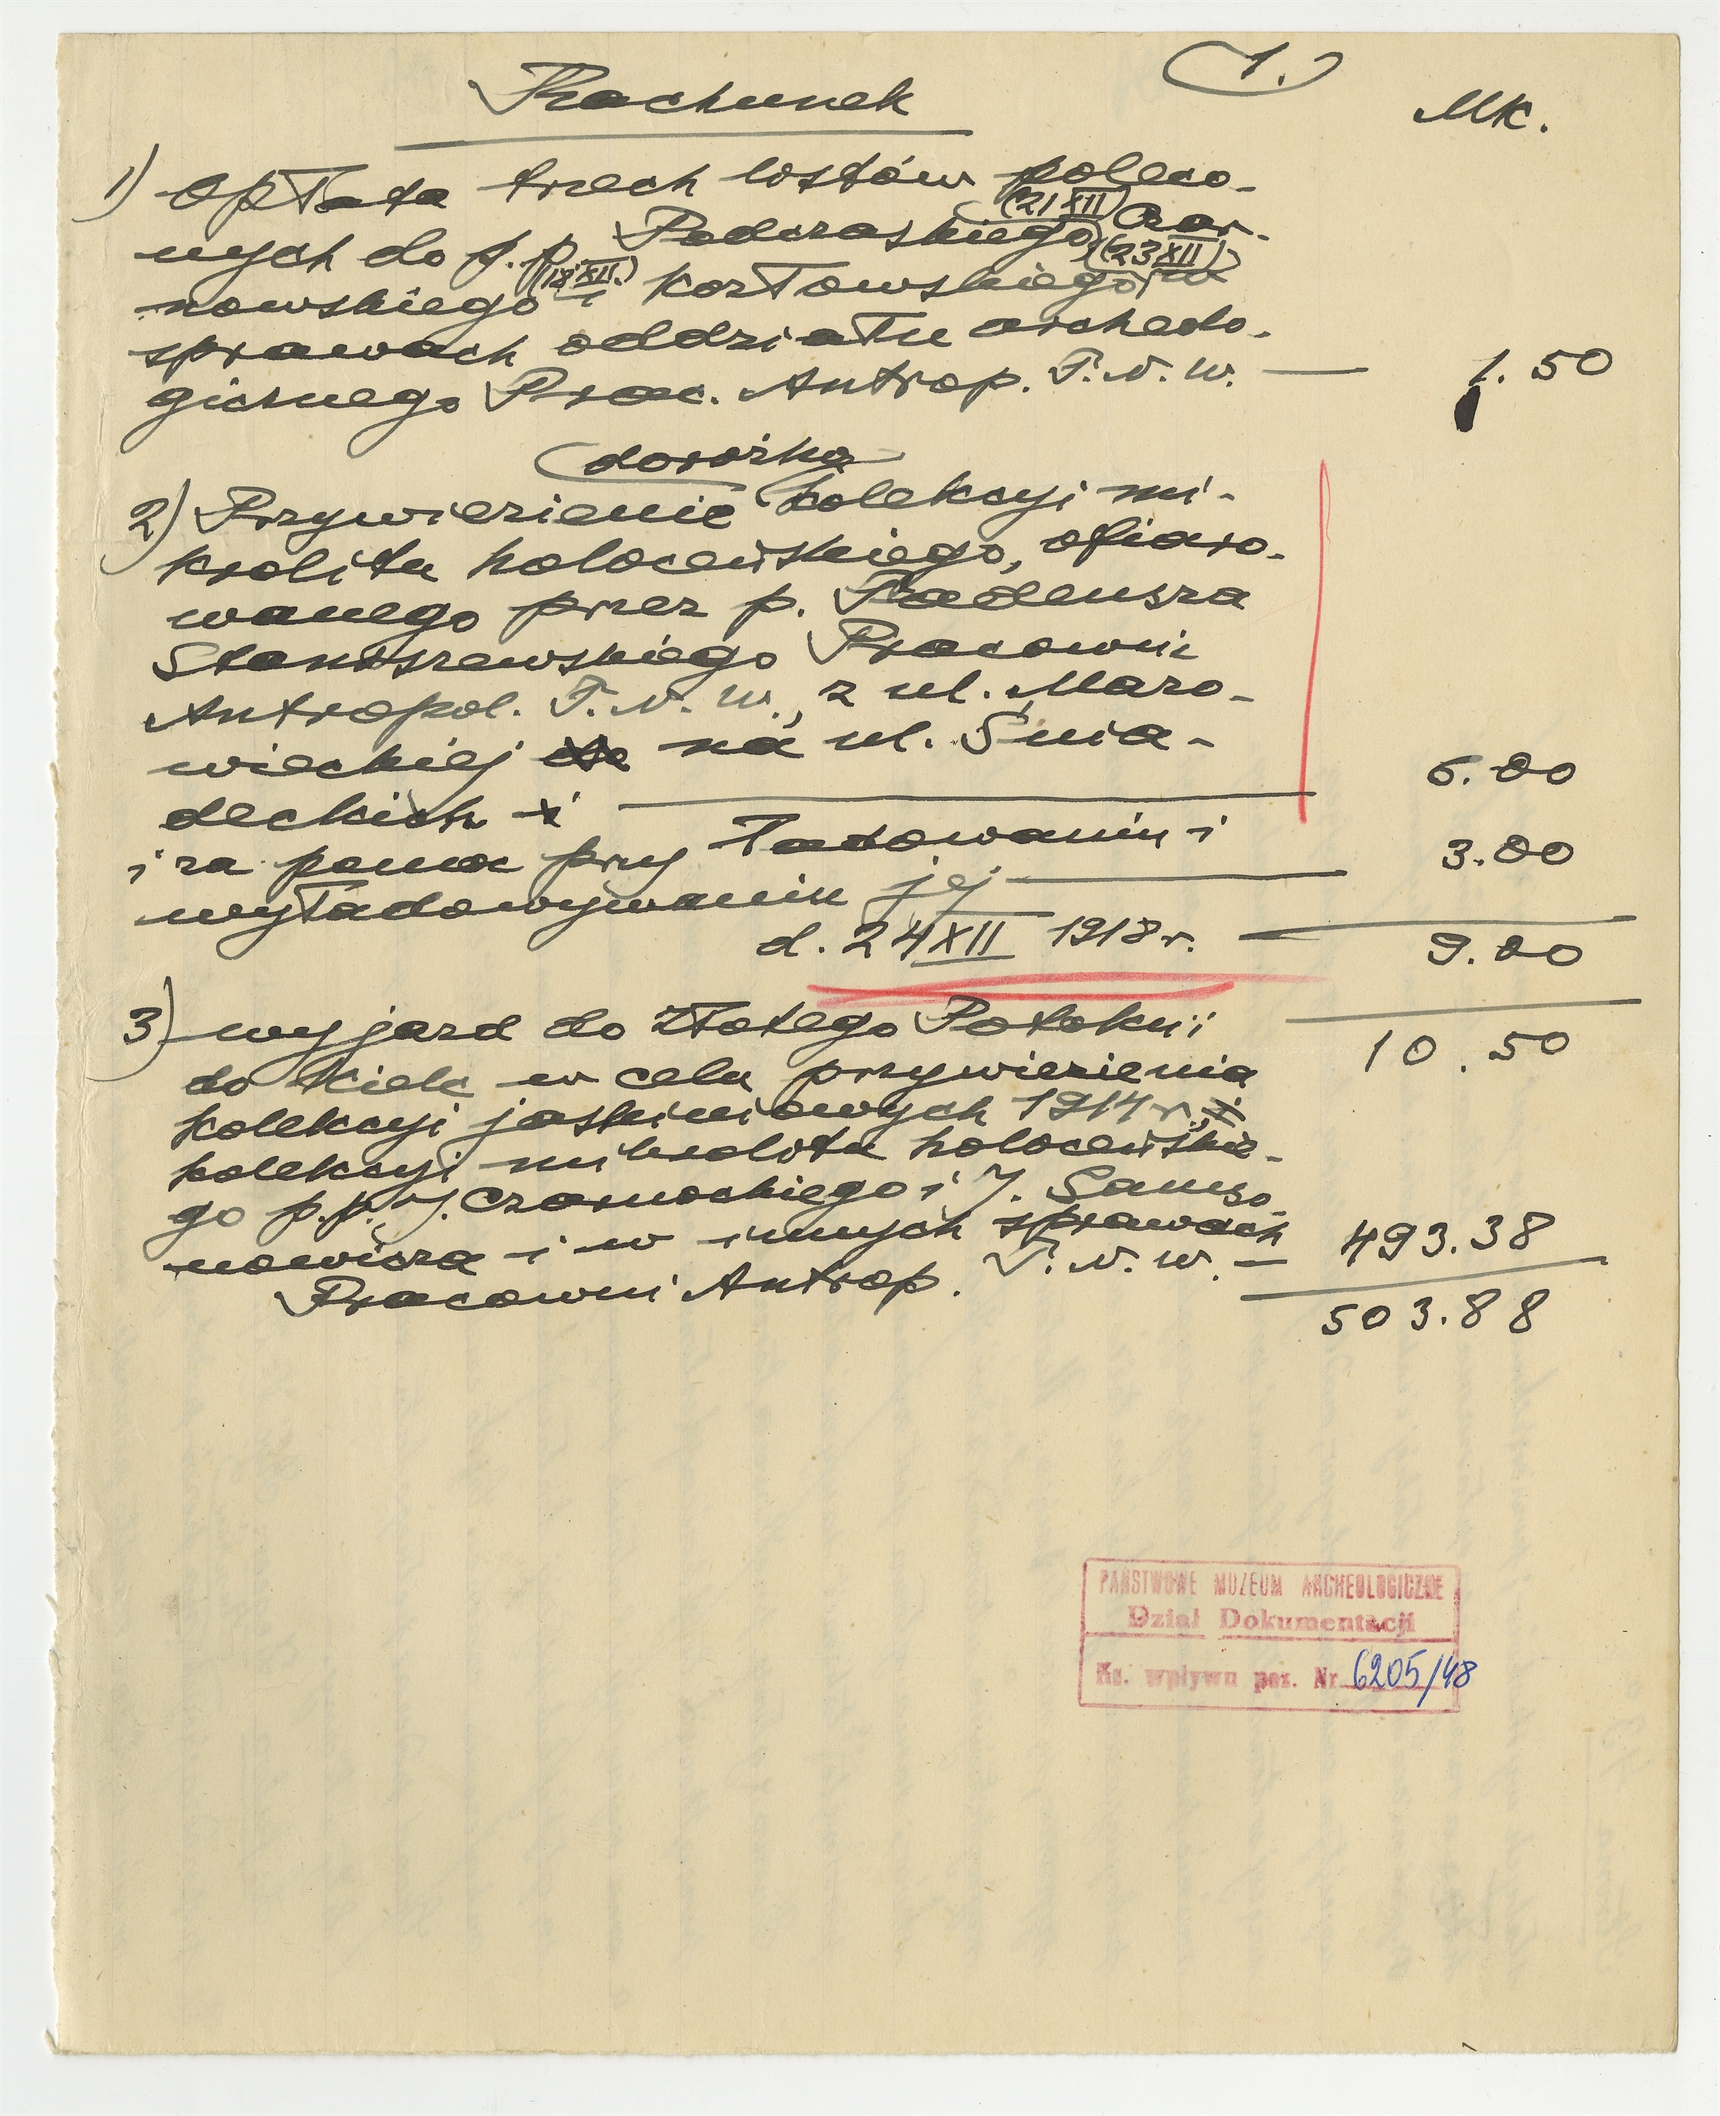 1.
Rachunek
Mk.
1) Opłata trzech listów poleco-
(21 XII)
nych do p.p. Podczaskiego, Czar-
(18 XII.) (23 XII)
nowskiego i Kozłowskiego, w
sprawach oddziału archeolo-
gicznego Prac. Antrop. T. N. W. — 1.50
dorożka
2) Przywiezienie kolekcyi mi-
krolitu holoceńskiego, ofiaro-
wanego przez p. Tadeusza
Staniszewskiego Pracowni
Antropol. T. N. W., z ul. Mazo-
wieckiej do na ul. Śnia-
deckich i — 6.00
i za pomoc przy ładowaniu i
wyładowywaniu jej — 3.00
d. 24 XII 1918 r. — 9.00
3) wyjazd do Złotego Potoku i
10.50
do Kielc w celu przywiezienia
kolekcyi jaskiniowych 1914 r. i
kolekcyi mikrolitu holoceńskie-
go p.p. J. Czarnockiego i J. Samso-
nowicza i w innych sprawach
Pracowni Antrop. T. N. W. — 493.38
503.88
PAŃSTWOWE MUZEUM ARCHEOLOGICZNE
Dział Dokumentacji
Ks. wpływu poz. Nr 6205/48